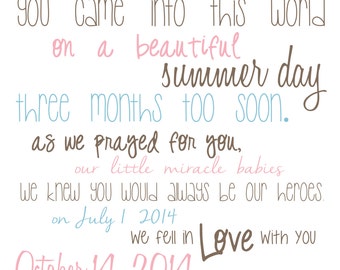 you came into this world
on a beautiful
summer day
three months too soon.
as we prayed for you,
our little miracle babies
we knew you would always be our heroes.
on July 1 2014
we fell in Love with you
October 14, 2014